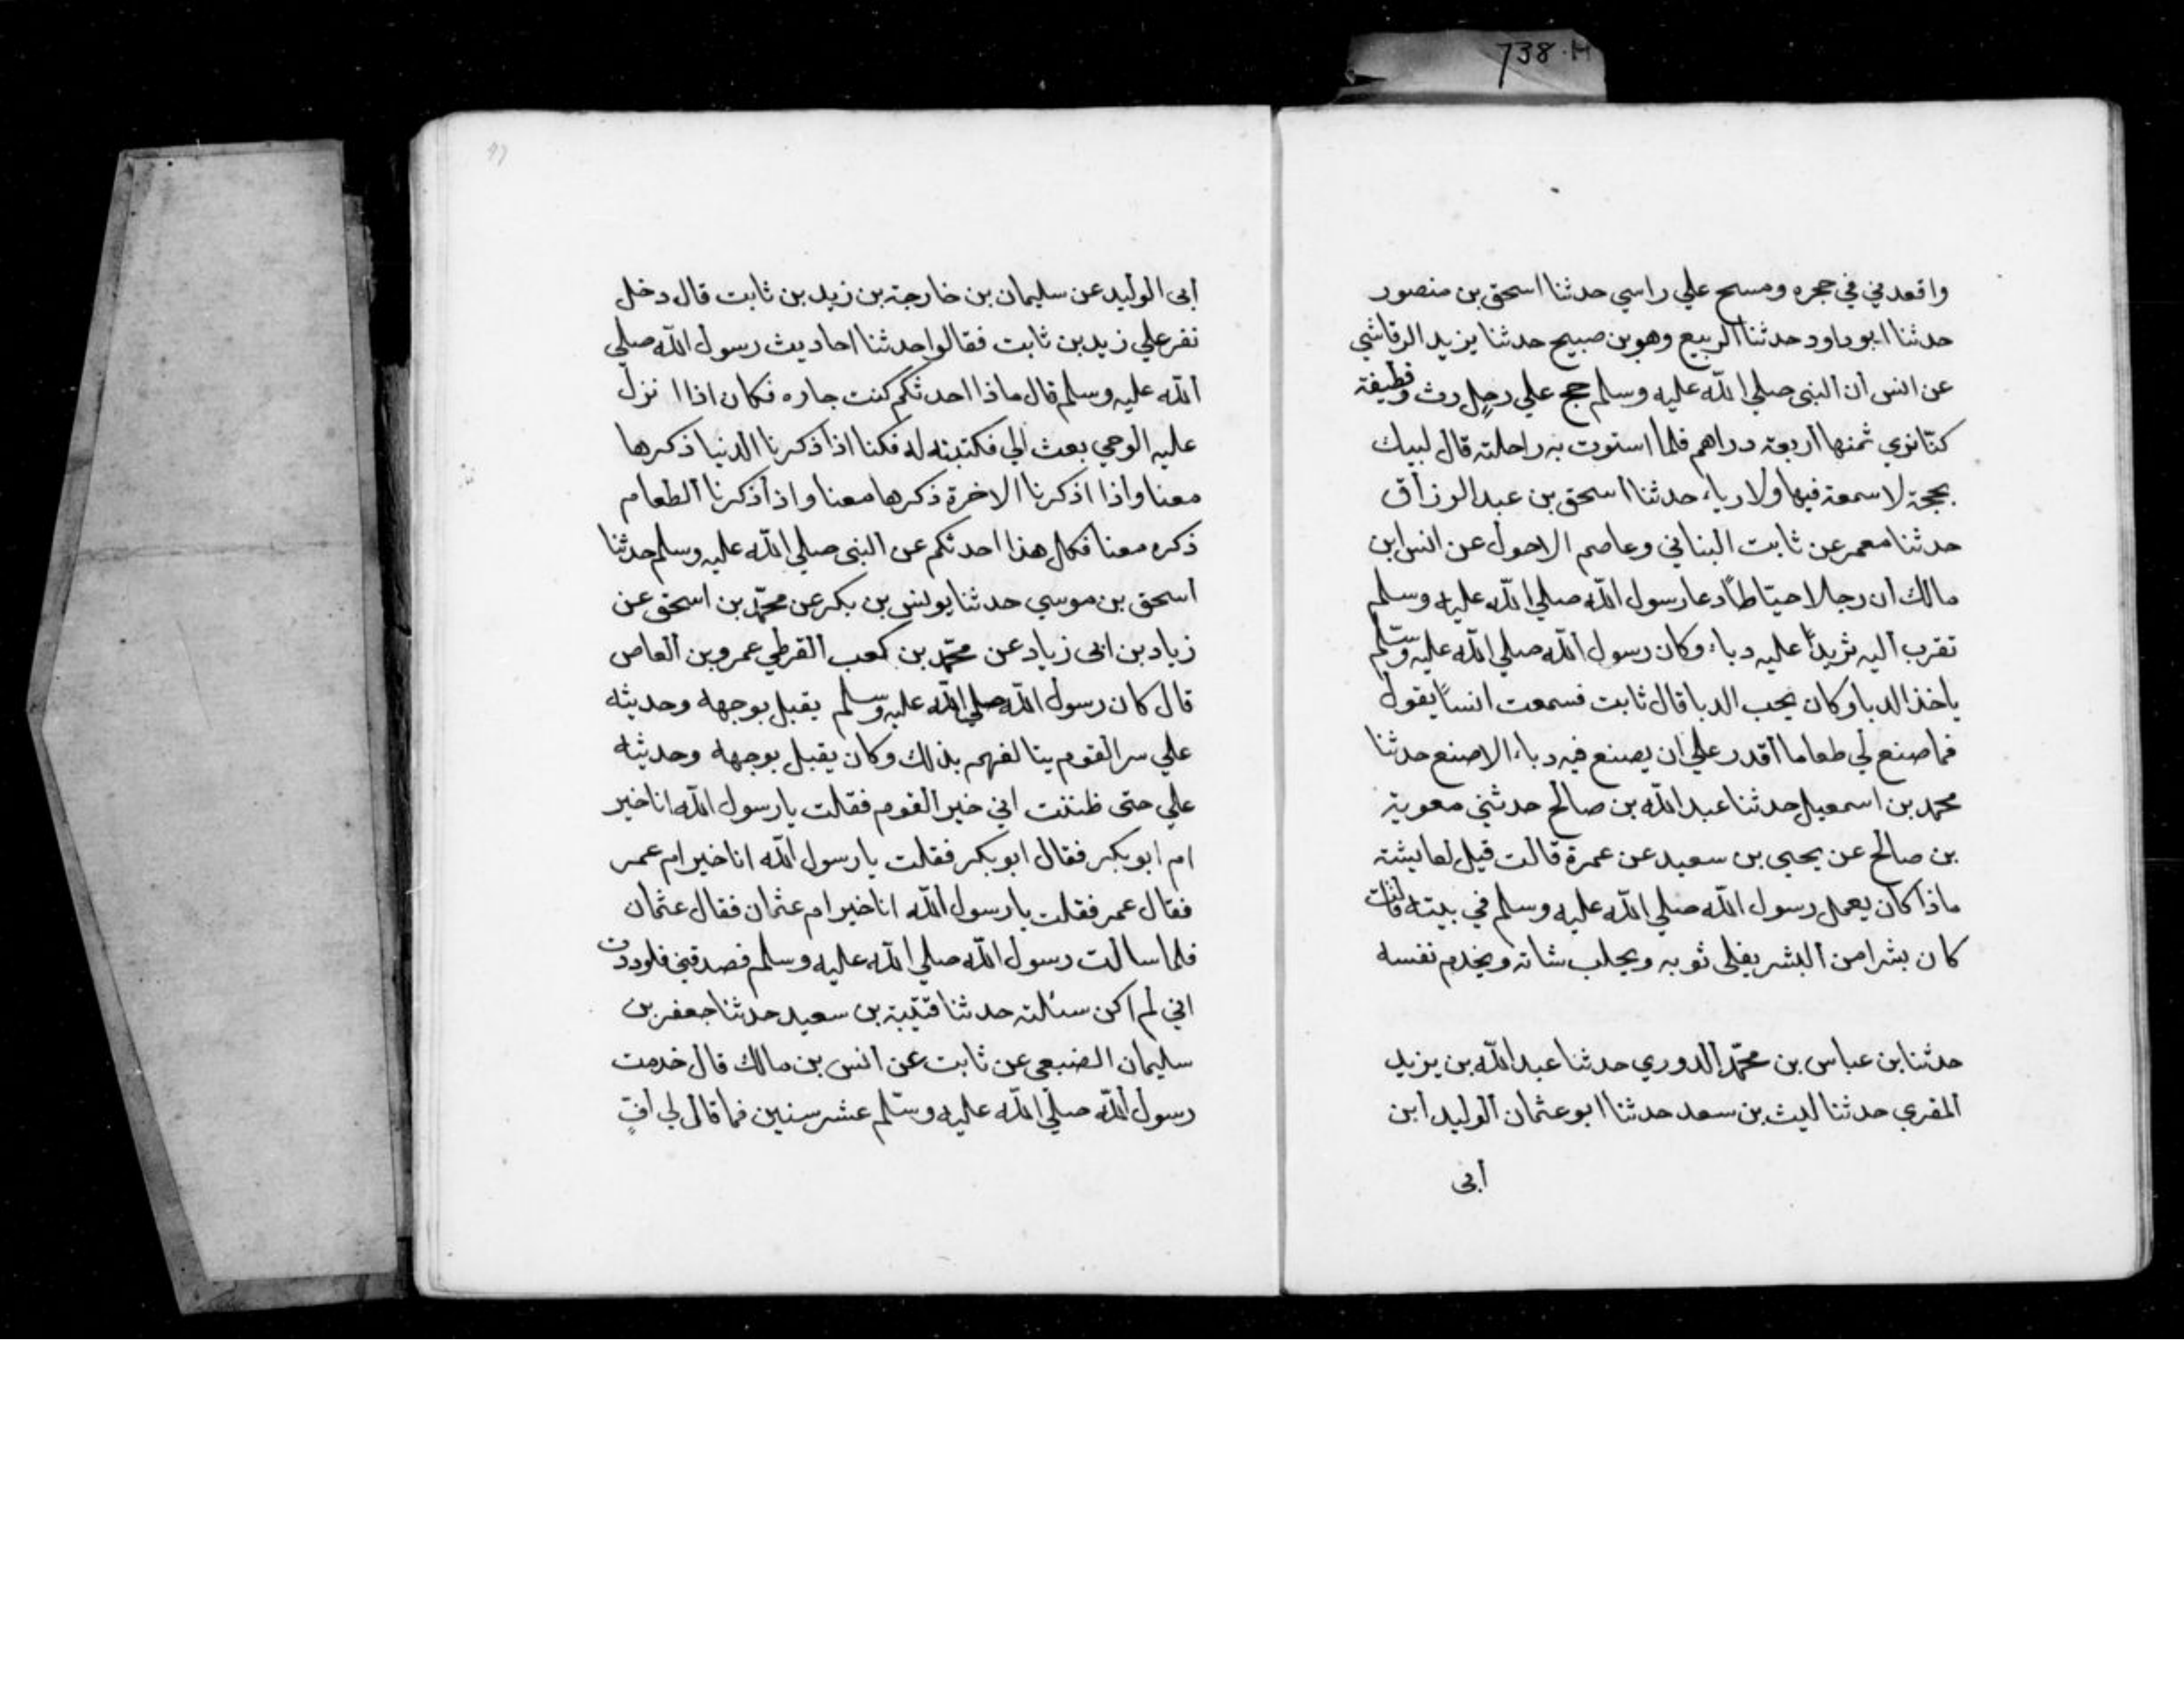 738·H
واقعدني في حجره ومسح علي راسي حدثنا اسحق بن منصور
حدثنا ابو داود حدثنا الربيع وهو بن صبيح حدثنا يزيد الرقاشي
عن انس ان النبى صلي الله عليه وسلم حج علي رحل رث وقطيفة
كنا نري ثمنها اربعة دراهم فلما استوت به راحلته قال لبيك
بحجة لا سمعة فيها ولا رياء حدثنا اسحق بن عبد الرزاق
حدثنا معمر عن ثابت البناني وعاصم الاحول عن انس ابن
مالك ان رجلا خياطا دعا رسول الله صلي الله عليه وسلم
تقرب اليه ثريدًا عليه دباء وكان رسول الله صلي الله عليه وسلم
ياخذ الدبا وكان يحب الدبا قال ثابت فسمعت انسًا يقول
فما صنع لي طعاما اقدر علي ان يصنع فيه دباء الا صنع حدثنا
محمد بن اسمعيل حدثنا عبد الله بن صالح حدثني معوية
بن صالح عن يحيى بن سعيد عن عمرة قالت قيل لعايشة
ماذا كان يعمل رسول الله صلي الله عليه وسلم في بيته قالت
كان بشرا من البشر يفلى ثوبه ويحلب شاته ويخدم نفسه
حدثنا بن عباس بن محمّد الدوري حدثنا عبد الله بن يزيد
المقري حدثنا ليث بن سعد حدثنا ابو عثمان الوليد ابن
أبى
أبى الوليد عن سليمان بن خارجة بن زيد بن ثابت قال دخل
نفر علي زيد بن ثابت فقالوا حدثنا احاديث رسول الله صلي
الله عليه وسلم قال ماذا احدثكم كنت جاره فكان اذا ا نزل
عليه الوحي بعث الي فكتبته له فكنا اذا ذكرنا الدنيا ذكرها
معنا واذا اذكرنا الاخرة ذكرها معنا واذا ذكرنا الطعام
ذكره معنا فكل هذا احدثكم عن النبى صلي الله عليه وسلم حدثنا
اسحق بن موسي حدثنا يونس بن بكر عن محمّد بن اسحق عن
زياد بن ابى زياد عن محمّد بن كعب القرظي عمرو بن العاص
قال كان رسول الله صلي الله عليه وسلم يقبل بوجهه وحديثه
علي سر القوم يتالفهم بذلك وكان يقبل بوجهه وحديثه
علي حتى ظننت اني خير القوم فقلت يا رسول الله انا خير
ام ابو بكر فقال ابو بكر فقلت يا رسول الله انا خير ام عمر
فقال عمر فقلت يا رسول الله انا خير ام عثمان فقال عثمان
فلما سالت رسول الله صلي الله عليه وسلم فصدقني فلوددت
اني لم اكن سئلته حدثنا قتيبة بن سعيد حدثنا جعفر بن
سليمان الضبعى عن ثابت عن انس بن مالك قال خدمت
رسول الله صلي الله عليه وسلم عشر سنين فما قال لي افٍ